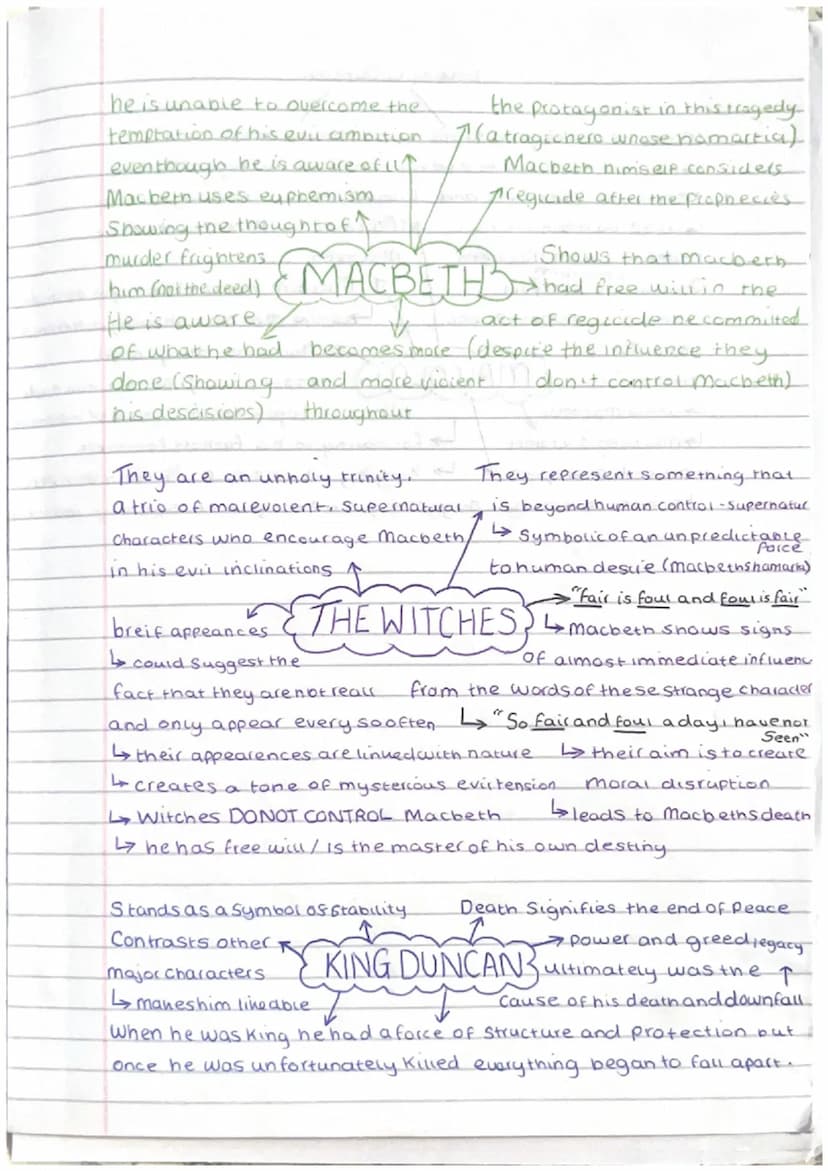 he is unable to overcome the
temptation of his evil ambition
eventhough he is aware of it
Macbeth uses euphemism
Showing the thought of
murder frightens
him (not the deed)
the protagonist in this tragedy
(a tragic hero whose hamartia)
Macbeth himself considers
regicide after the prophecies
MACBETH
Shows that macbeth
had free will in the
act of regicide he committed
(despite the influence they
don't control Macbeth)
He is aware
of what he had
done (Showing
his descisions)
becomes more
and more violent
throughout
They are an unholy trinity,
a trio of malevolent, supernatural
characters who encourage Macbeth
in his evil inclinations
They represent something that
is beyond human control - supernatur
↳ Symbolic of an unpredictable
force
to human desire (macbeths hamartia)
THE WITCHES
"fair is foul and foul is fair"
↳ Macbeth shows signs
of almost immediate influenc
from the words of these strange character
↳ "So fair and foul a day i have not
Seen"
breif appeances
↳ could suggest the
fact that they are not reall
and only appear every so often
↳ their appearences are linked with nature
↳ creates a tone of mysterious evil tension
↳ Witches DO NOT CONTROL Macbeth
↳ he has free will / is the master of his own destiny
↳ their aim is to create
moral disruption
↳ leads to Macbeths death
Stands as a symbol of stability
Death Signifies the end of Peace
Contrasts other
major characters
↳ makes him likeable
KING DUNCAN
power and greed legacy
ultimately was the
cause of his death and downfall
When he was King he had a force of structure and protection but
once he was unfortunately killed everything began to fall apart.